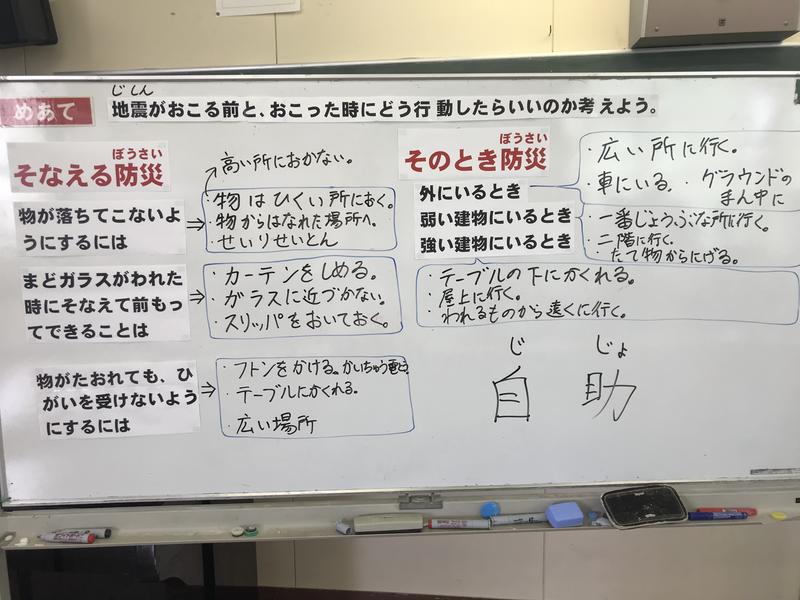 めあて
じしん
地震がおこる前と、おこった時にどう行動したらいいのか考えよう。
ぼうさい
そなえる防災
高い所におかない。
物が落ちてこないよ
うにするには
⇒
・物はひくい所におく。
・物からはなれた場所へ。
・せいりせいとん
まどガラスがわれた
時にそなえて前もっ
てできることは
⇒
・カーテンをしめる。
・ガラスに近づかない。
・スリッパをおいておく。
物がたおれても、ひ
がいを受けないよう
にするには
⇒
・フトンをかける。かいちゅう電とう
・テーブルにかくれる。
・広い場所
ぼうさい
そのとき防災
外にいるとき
・広い所に行く。
・車にいる。・グラウンドの
まん中に
弱い建物にいるとき
・一番じょうぶな所に行く。
・二階に行く。
たて物からにげる。
強い建物にいるとき
・テーブルの下にかくれる。
・屋上に行く。
・われるものから遠くに行く。
じ じょ
自助